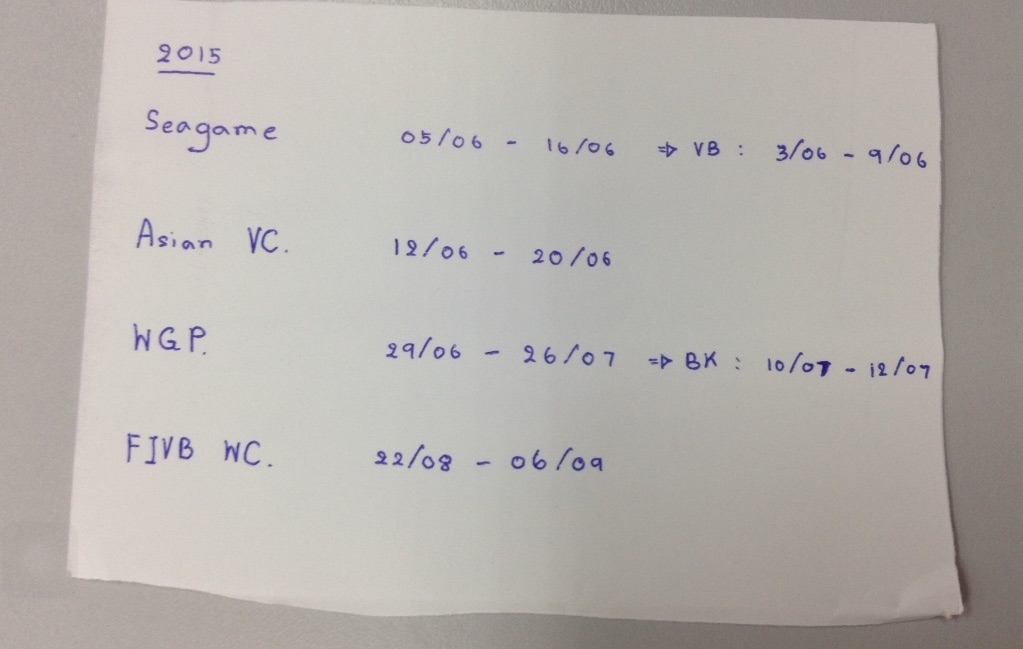 2015
Seagame 05/06 - 16/06 ⇒ VB : 3/06 - 9/06
Asian VC. 12/06 - 20/06
WGP. 29/06 - 26/07 ⇒ BK : 10/07 - 12/07
FIVB WC. 22/08 - 06/09